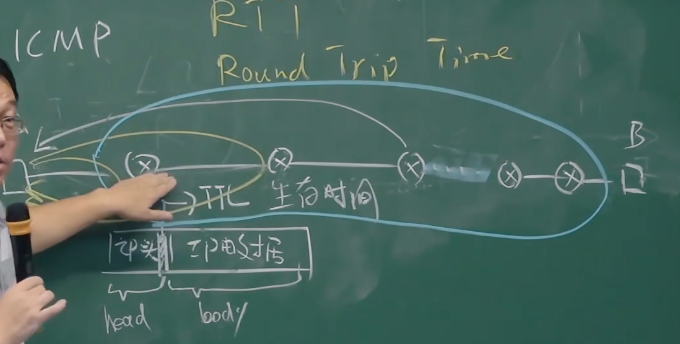 ICMP
RTT
Round Trip Time
A
B
→TTL 生存时间
IP头 IP的数据
head body